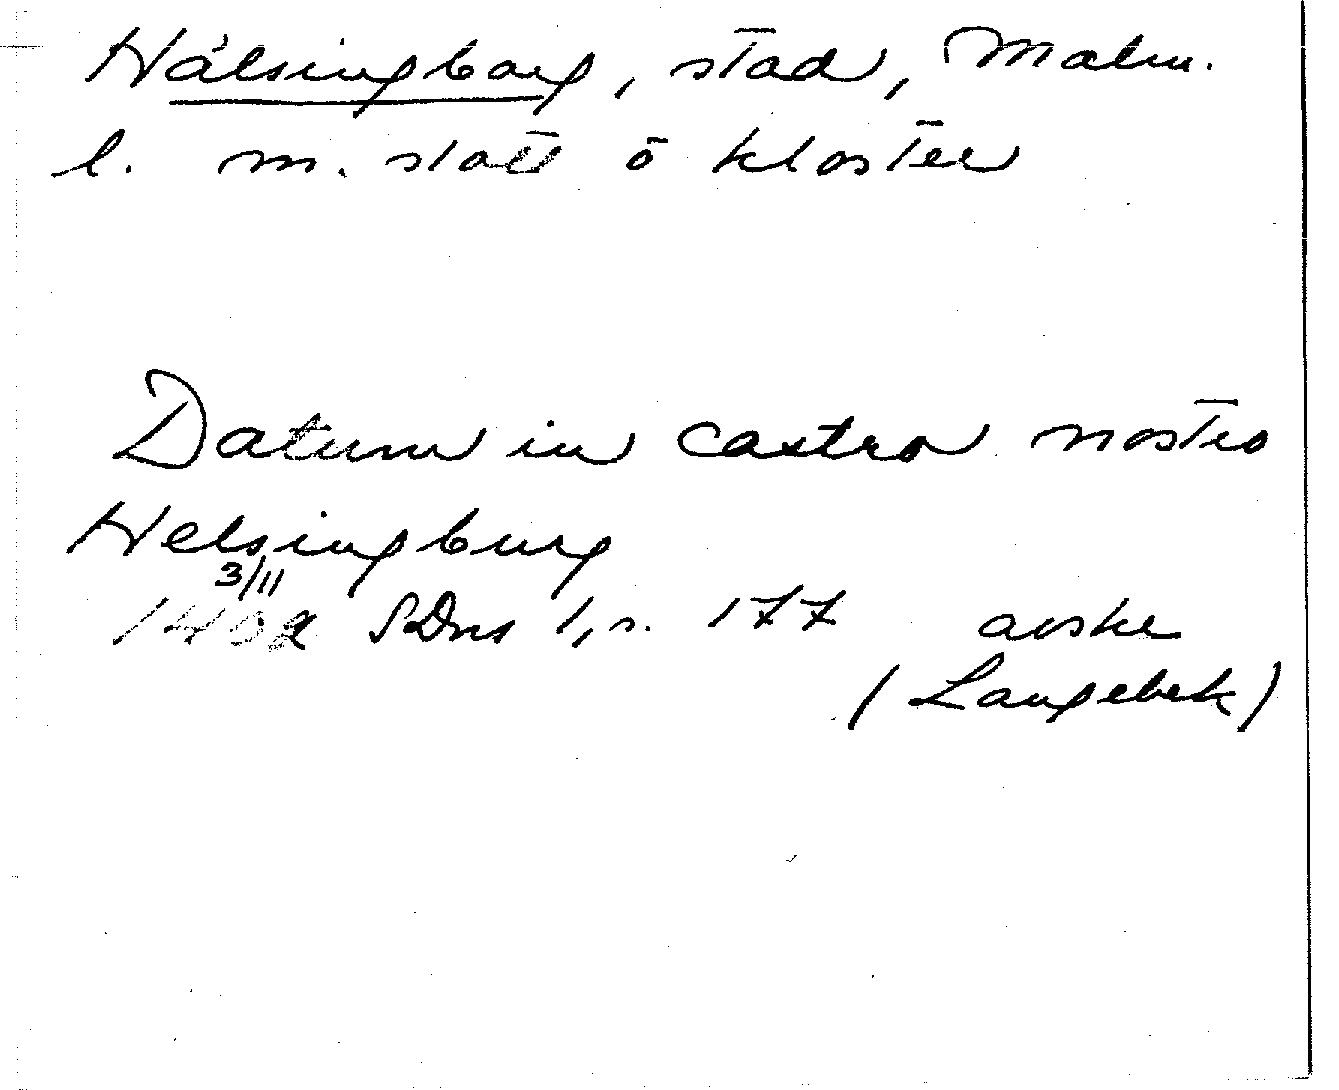 Hälsingborg, stad, Malm.
l. m. slott o kloster
Datum in castro nostro
Helsingburg
3/11
1402 SDns 1, s. 177 avskr
(Langebek)